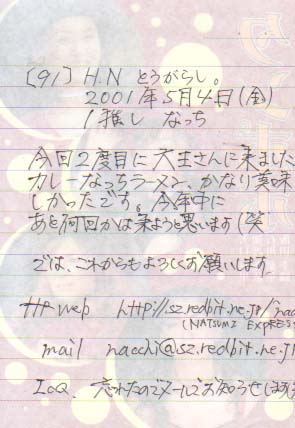 [91] H.N とうがらし。
2001年5月4日(金)
1推し なっち
今回2度目に大王さんに来ました
カレーなっちラーメン、かなり美味
しかったです。今年中に
あと何回かは来ようと思います(笑
では、これからもよろしくお願いします
HP web http://sz.redbit.ne.jp/nac
(NATSUMI EXPRES
mail nacchi@sz.redbit.ne.j
ICQ 忘れたのでメールでお知らせします